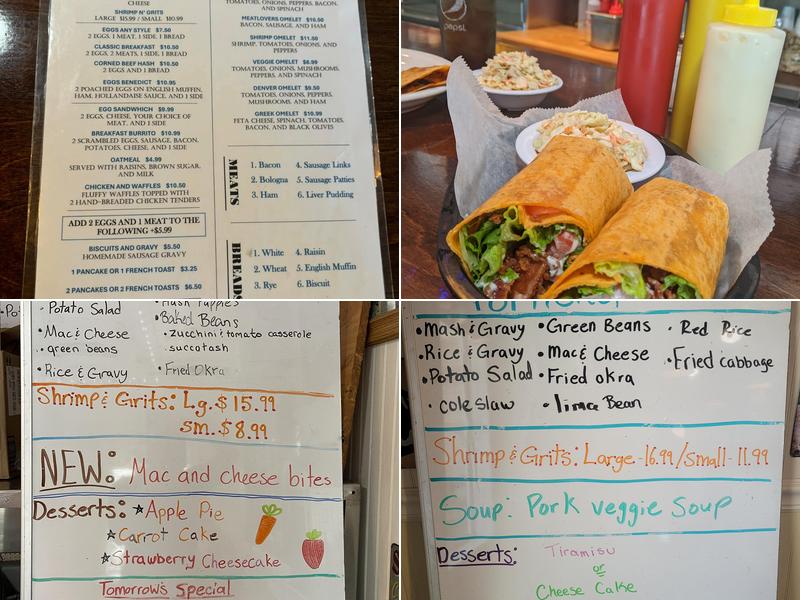 CHEESE
SHRIMP N' GRITS
LARGE $15.99 / SMALL $10.99
EGGS ANY STYLE $7.50
2 EGGS, 1 MEAT, 1 SIDE, 1 BREAD
CLASSIC BREAKFAST $10.50
2 EGGS, 2 MEATS, 1 SIDE, 1 BREAD
CORNED BEEF HASH $10.50
2 EGGS AND 1 BREAD
EGGS BENEDICT $10.95
2 POACHED EGGS ON ENGLISH MUFFIN,
HAM, HOLLANDAISE SAUCE, AND 1 SIDE
EGG SANDWICH $9.99
2 EGGS, CHEESE, YOUR CHOICE OF
MEAT, AND 1 SIDE
BREAKFAST BURRITO $10.99
2 SCRAMBLED EGGS, SAUSAGE, BACON,
POTATOES, CHEESE, AND 1 SIDE
OATMEAL $4.99
SERVED WITH RAISINS, BROWN SUGAR,
AND MILK
CHICKEN AND WAFFLES $10.50
FLUFFY WAFFLES TOPPED WITH
2 HAND-BREADED CHICKEN TENDERS
ADD 2 EGGS AND 1 MEAT TO THE
FOLLOWING +$5.99
BISCUITS AND GRAVY $5.50
HOMEMADE SAUSAGE GRAVY
1 PANCAKE OR 1 FRENCH TOAST $3.25
2 PANCAKES OR 2 FRENCH TOASTS $6.50
TOMATOES, ONIONS, PEPPERS, BACON,
AND SPINACH
MEATLOVERS OMELET $10.50
BACON, SAUSAGE, AND HAM
SHRIMP OMELET $11.50
SHRIMP, TOMATOES, ONIONS, AND
PEPPERS
VEGGIE OMELET $8.99
TOMATOES, ONIONS, MUSHROOMS,
PEPPERS, AND SPINACH
DENVER OMELET $9.50
TOMATOES, ONIONS, PEPPERS,
MUSHROOMS, AND HAM
GREEK OMELET $10.99
FETA CHEESE, SPINACH, TOMATOES,
BACON, AND BLACK OLIVES
MEATS
1. Bacon 4. Sausage Links
2. Bologna 5. Sausage Patties
3. Ham 6. Liver Pudding
BREADS
1. White 4. Raisin
2. Wheat 5. English Muffin
3. Rye 6. Biscuit
pepsi
• Potato Salad • Hush Puppies
• Baked Beans
• Mac & Cheese • zucchini & tomato casserole
• green beans • succotash
• Rice & Gravy • Fried Okra
Shrimp & Grits: Lg. $15.99
sm. $8.99
NEW: Mac and cheese bites
Desserts: ★Apple Pie
★Carrot Cake
★Strawberry Cheesecake
Tomorrow's Special
• Mash & Gravy • Green Beans • Red Rice
• Rice & Gravy • Mac & Cheese • Fried cabbage
• Potato Salad • Fried okra
• cole slaw • lima Bean
Shrimp & Grits: Large -16.99/small- 11.99
Soup: Pork veggie Soup
Desserts: Tiramisu
or
Cheese Cake